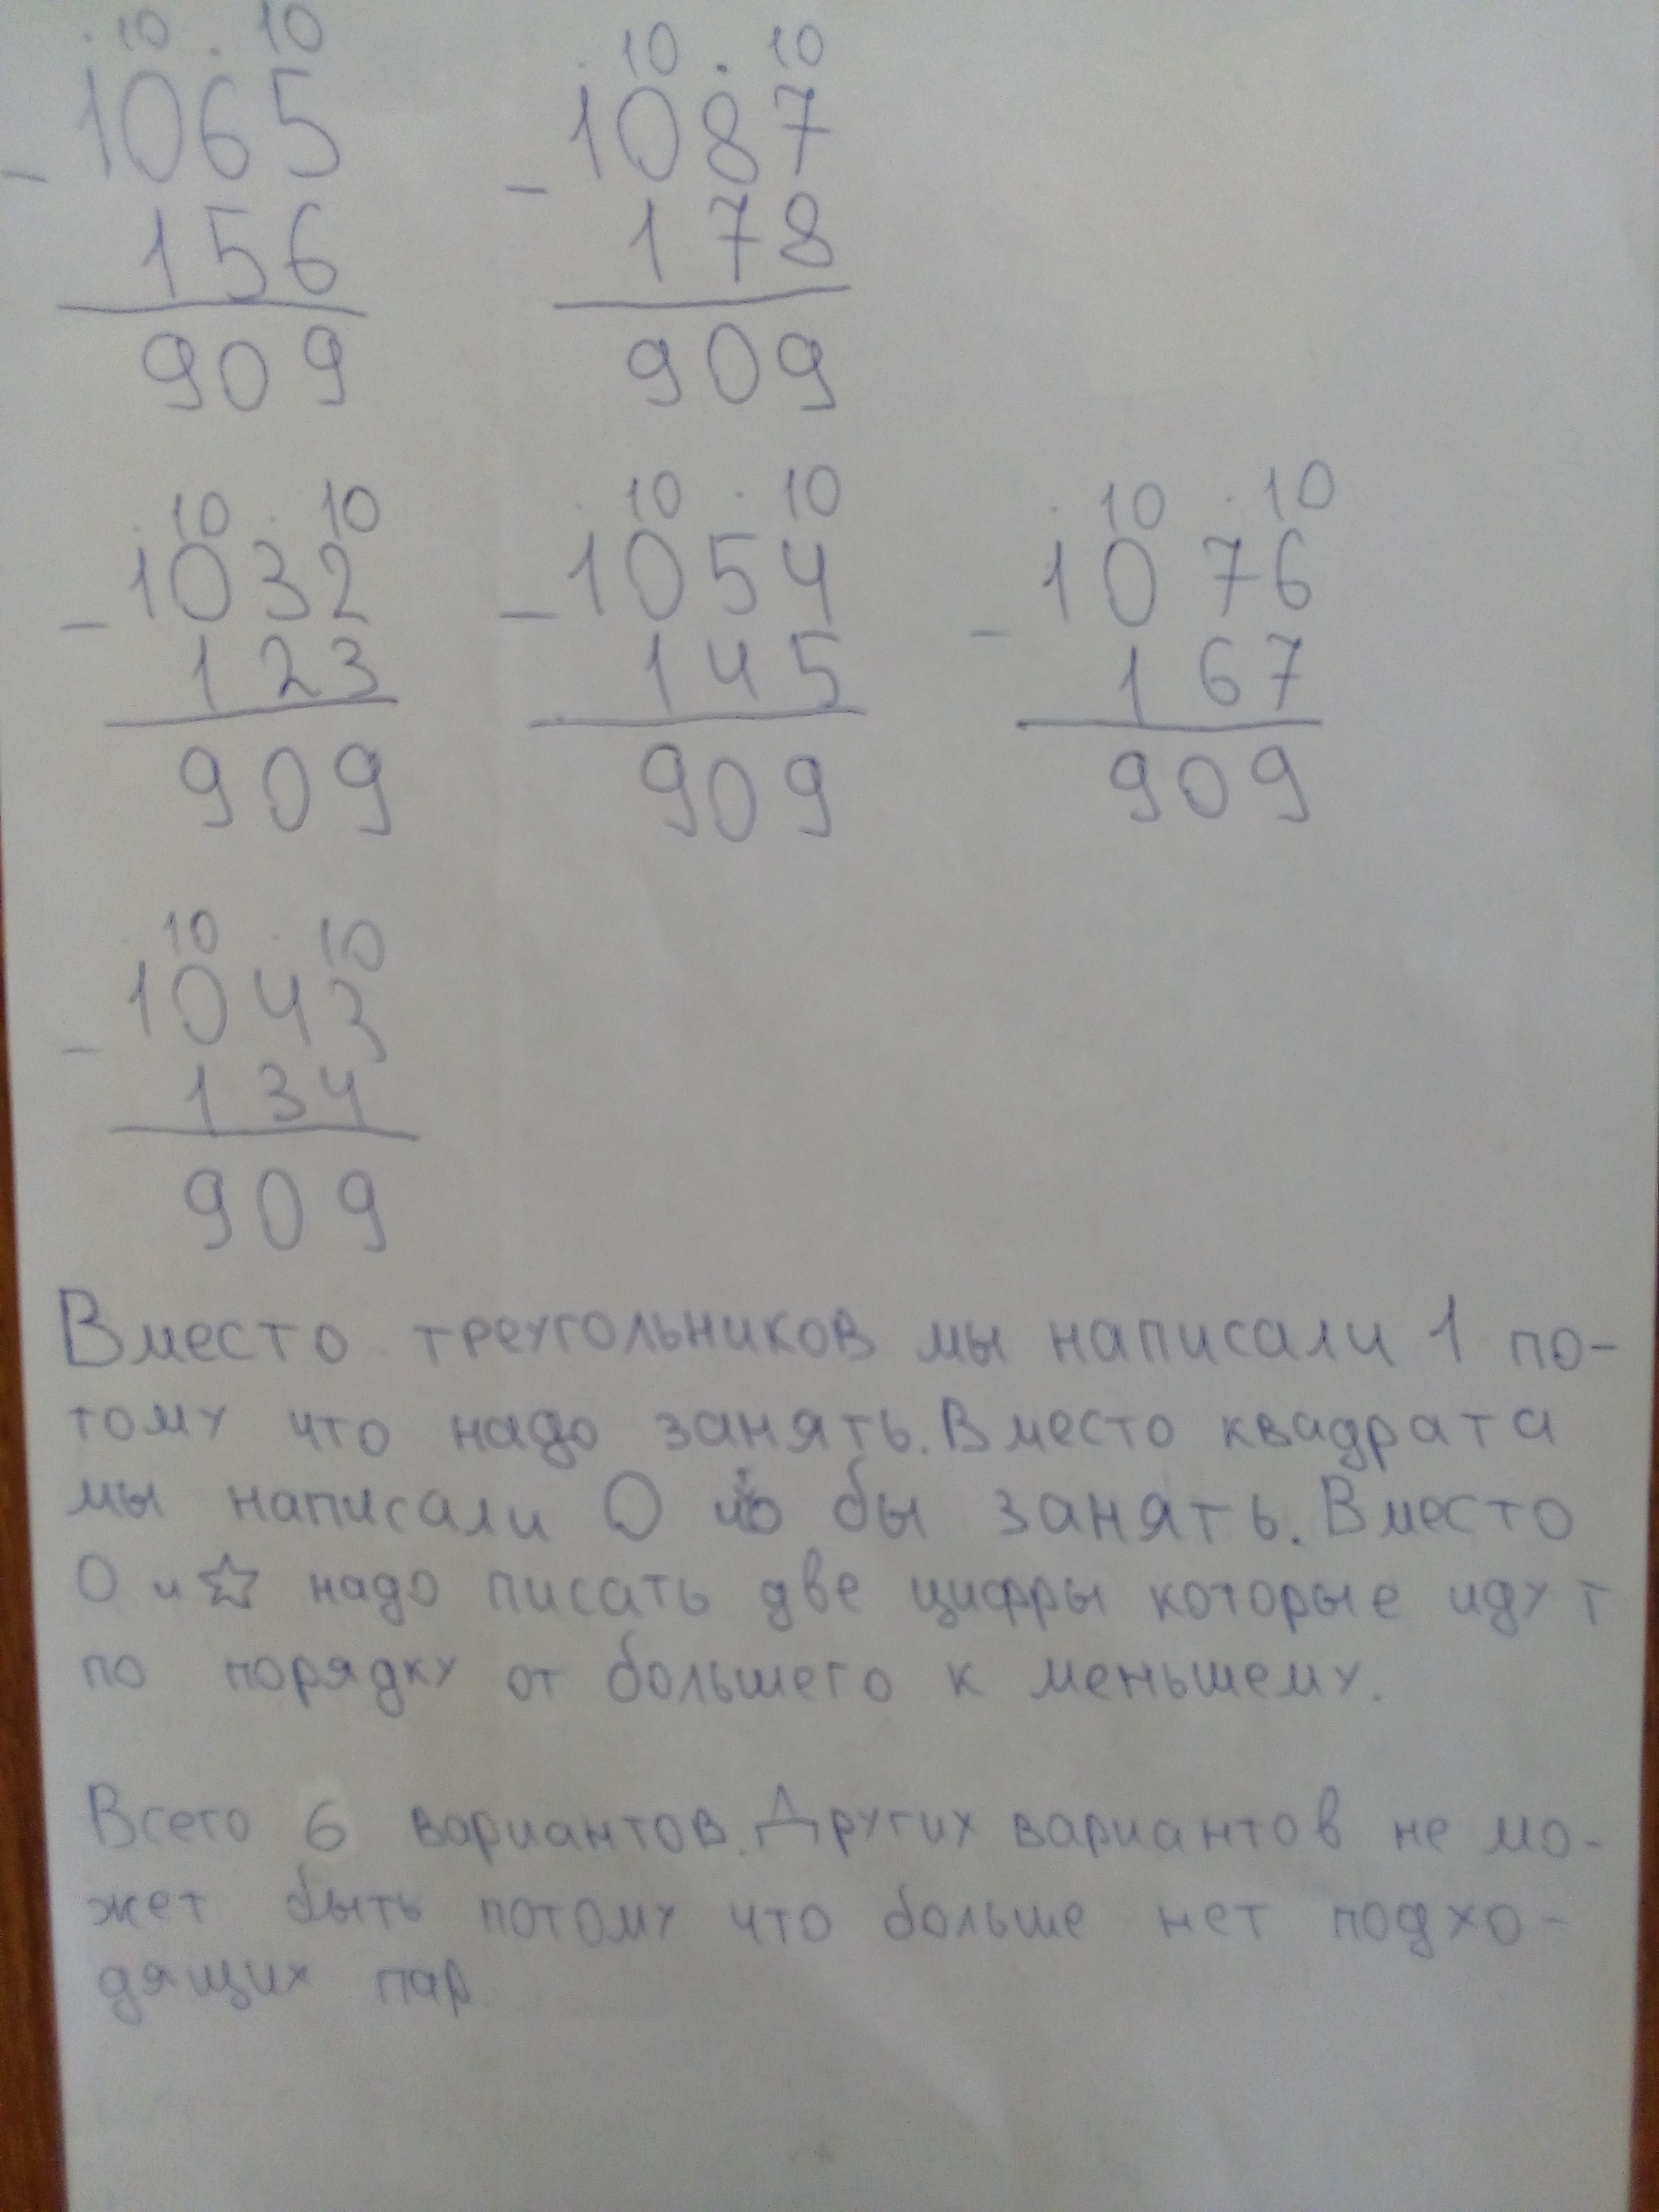 .10 . 10 .10 . 10
1065 1087
- 156 - 178
909 909
.10 . 10 .10 . 10 .10 . 10
1032 1054 1076
- 123 - 145 - 167
909 909 909
.10 . 10
1043
- 134
909
Вместо треугольников мы написали 1 по-
тому что надо занять. Вместо квадрата
мы написали 0 что бы занять. Вместо
О и ☆ надо писать две цифры которые идут
по порядку от большего к меньшему.
Всего 6 вариантов. Других вариантов не мо-
жет быть потому что больше нет подхо-
дящих пар.